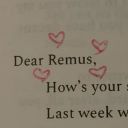 Dear Remus,
How's your
Last week w